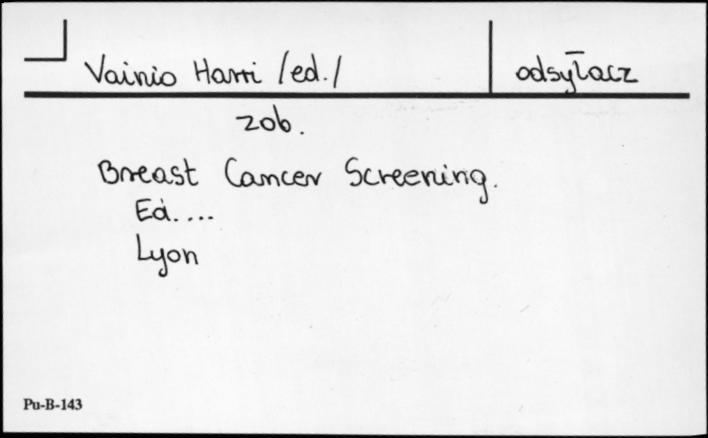 Vainio Harri /ed./ odsyłacz
zob.
Breast Cancer Screening.
Ed....
Lyon
Pu-B-143